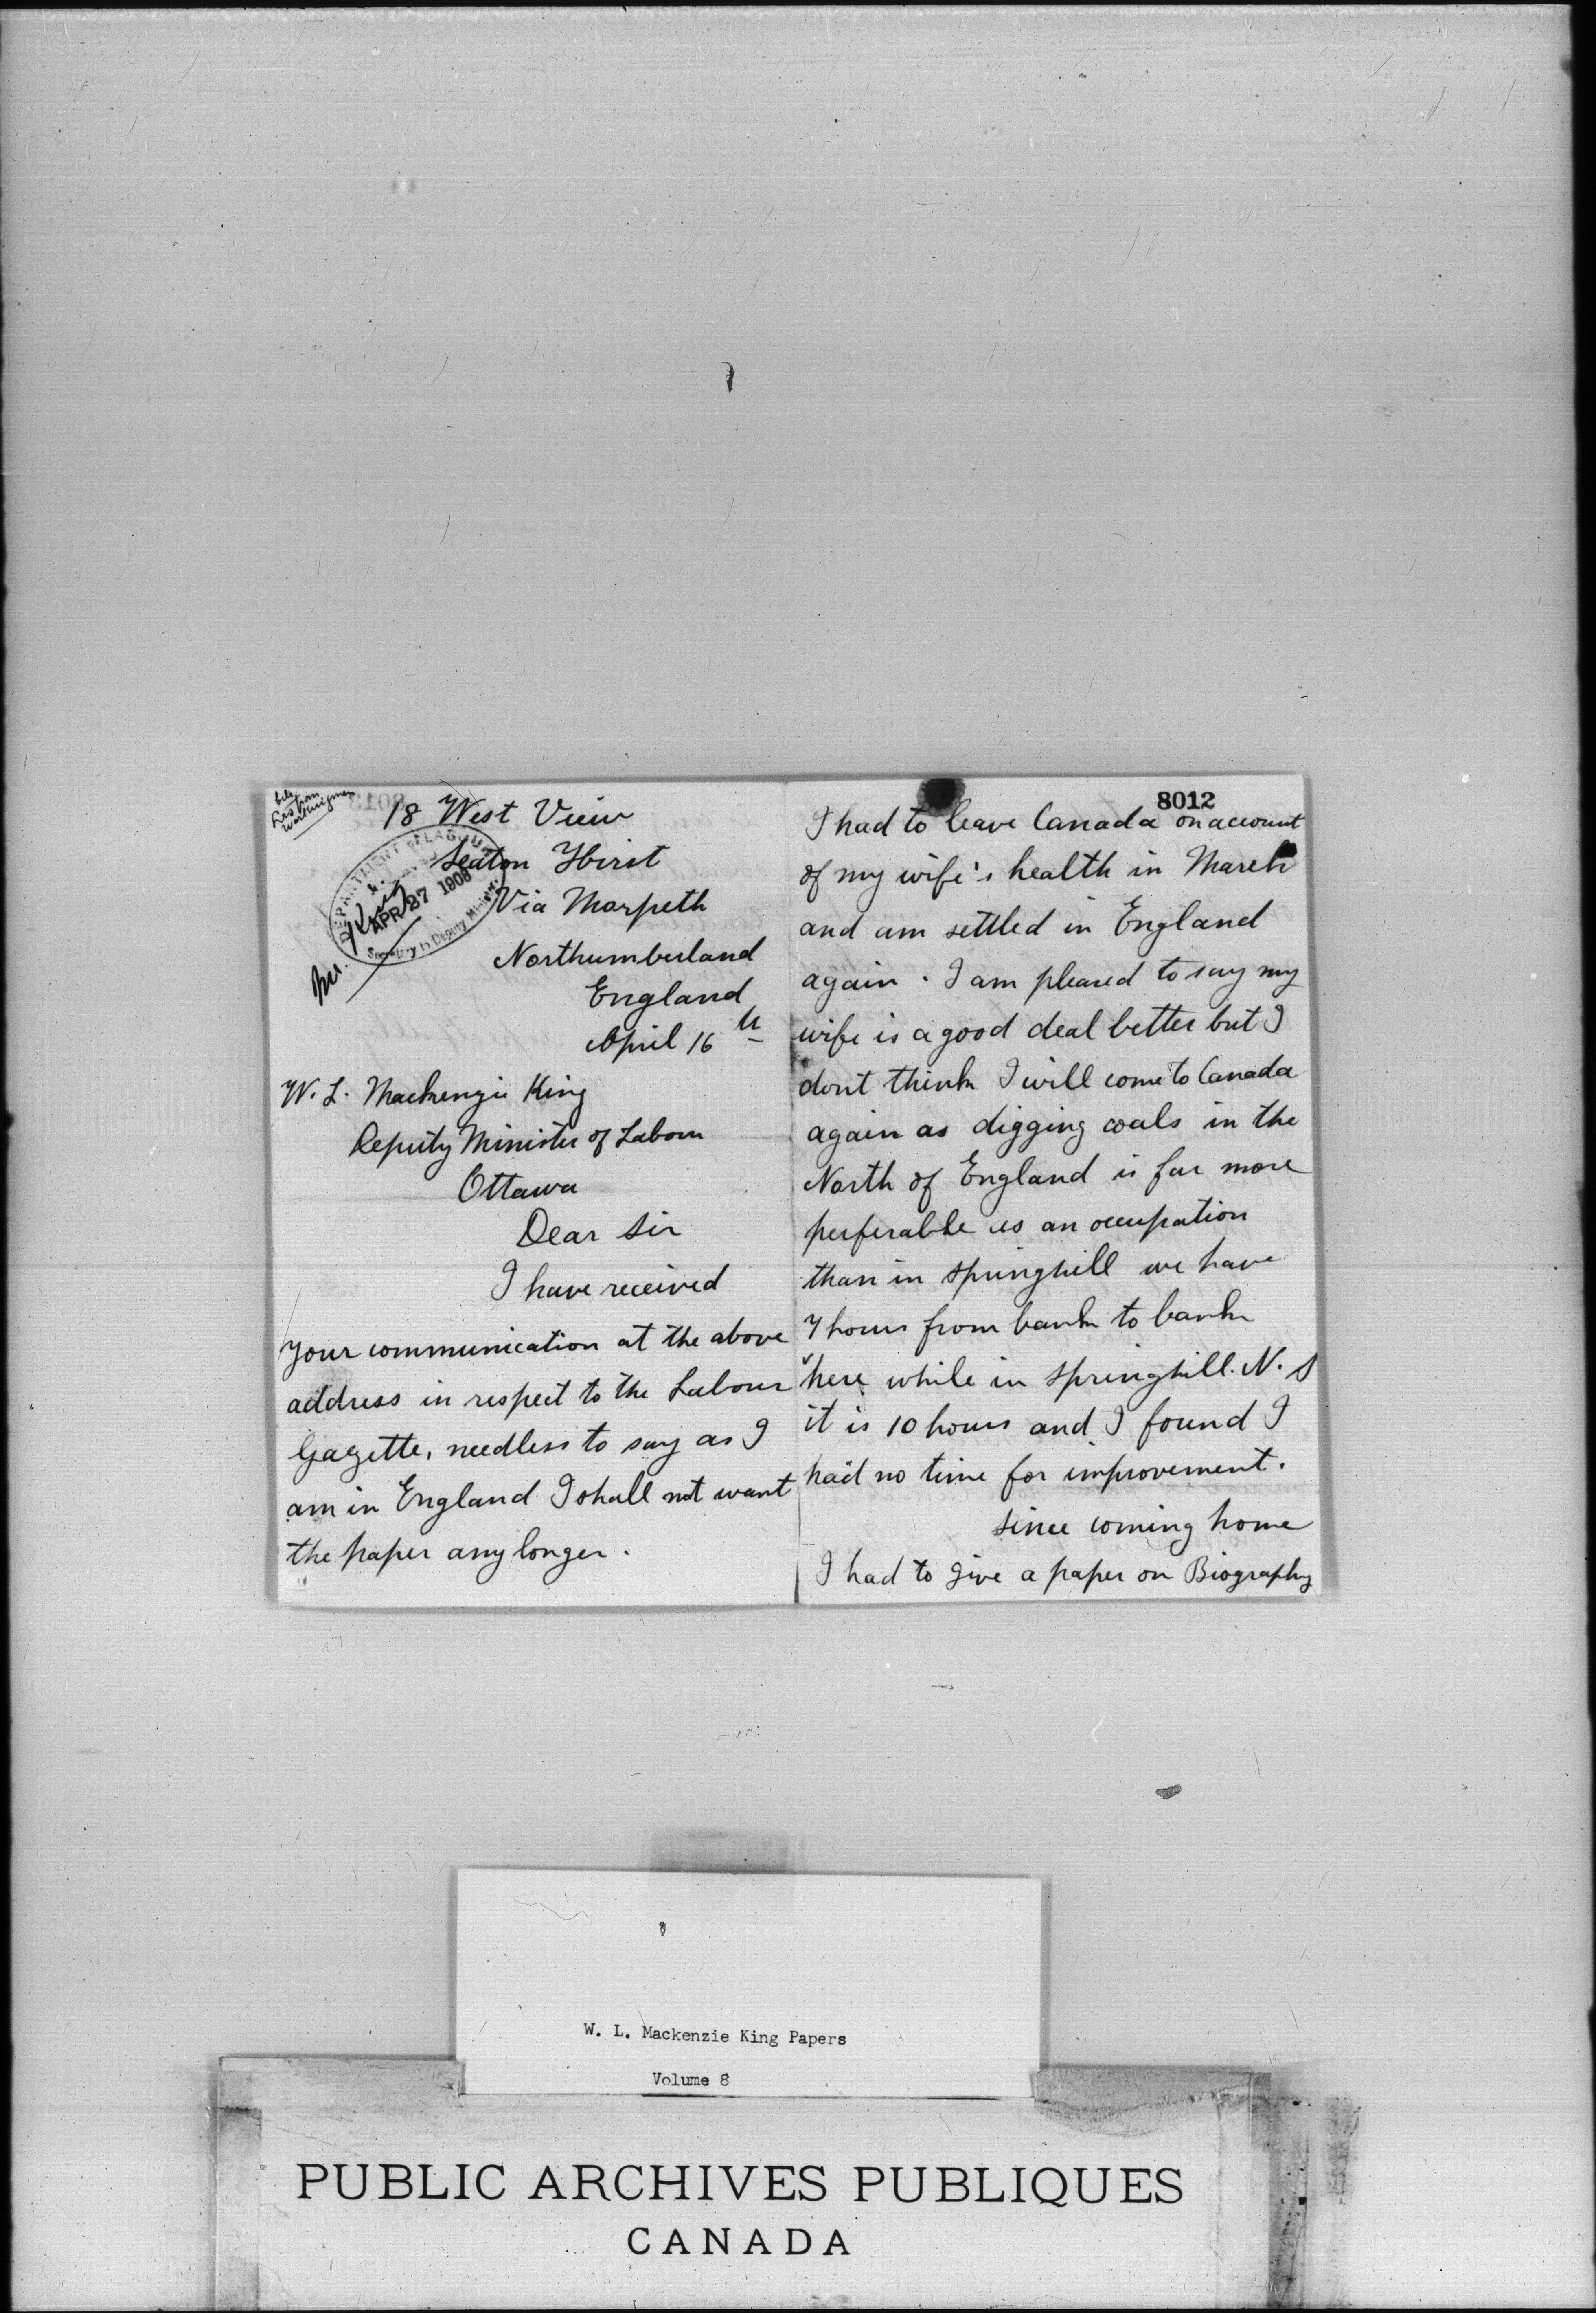 18 West View
Seaton Hirst
Via Morpeth
Northumberland
England
April 16th
DEPARTMENT OF LABOUR
APR 27 1908
Secretary to Deputy Minister
W. L. Mackenzie King
Deputy Minister of Labour
Ottawa
Dear Sir
I have received
your communication at the above
address in respect to the Labour
Gazette, needless to say as I
am in England I shall not want
the paper any longer.
8012
I had to leave Canada on account
of my wife's health in March
and am settled in England
again. I am pleased to say my
wife is a good deal better but I
dont think I will come to Canada
again as digging coals in the
North of England is far more
perferable as an occupation
than in Springhill we have
7 hours from bank to bank
here while in Springhill. N. S
it is 10 hours and I found I
had no time for improvement.
Since coming home
I had to give a paper on Biography
W. L. Mackenzie King Papers
Volume 8
PUBLIC ARCHIVES PUBLIQUES
CANADA